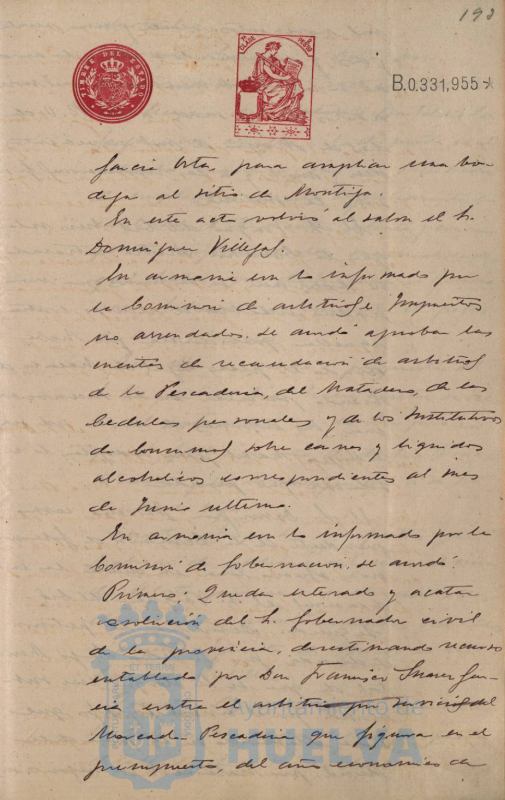 193
TIMBRE DEL ESTADO
B.0.331,955
Garcia Orta, para ampliar una bo-
dega al sitio de Montija.
En este acto volvió al salon el Sr.
Dominguez Villegas.
En armonia con lo informado por
la Comision de arbitrios e Impuestos
no arrendados, se acordó aprobar las
cuentas de recaudacion de arbitrios
de la Pescaderia, del Matadero, de las
Cedulas personales y de los Sustitutivos
de Consumos sobre carnes y liquidos
alcoholicos correspondientes al mes
de Junio ultimo.
En armonia con lo informado por la
Comision de Gobernacion, se acordó:
Primero: Quedar enterado y acatar
resolucion del Sr. Gobernador civil
de la provincia, desestimando recurso
entablado por Don Francisco Suarez Gar-
cia contra el arbitrio por servicio del
Mercado Pescaderia que figura en el
presupuesto, del año economico de
Ayuntamiento de
HUELVA